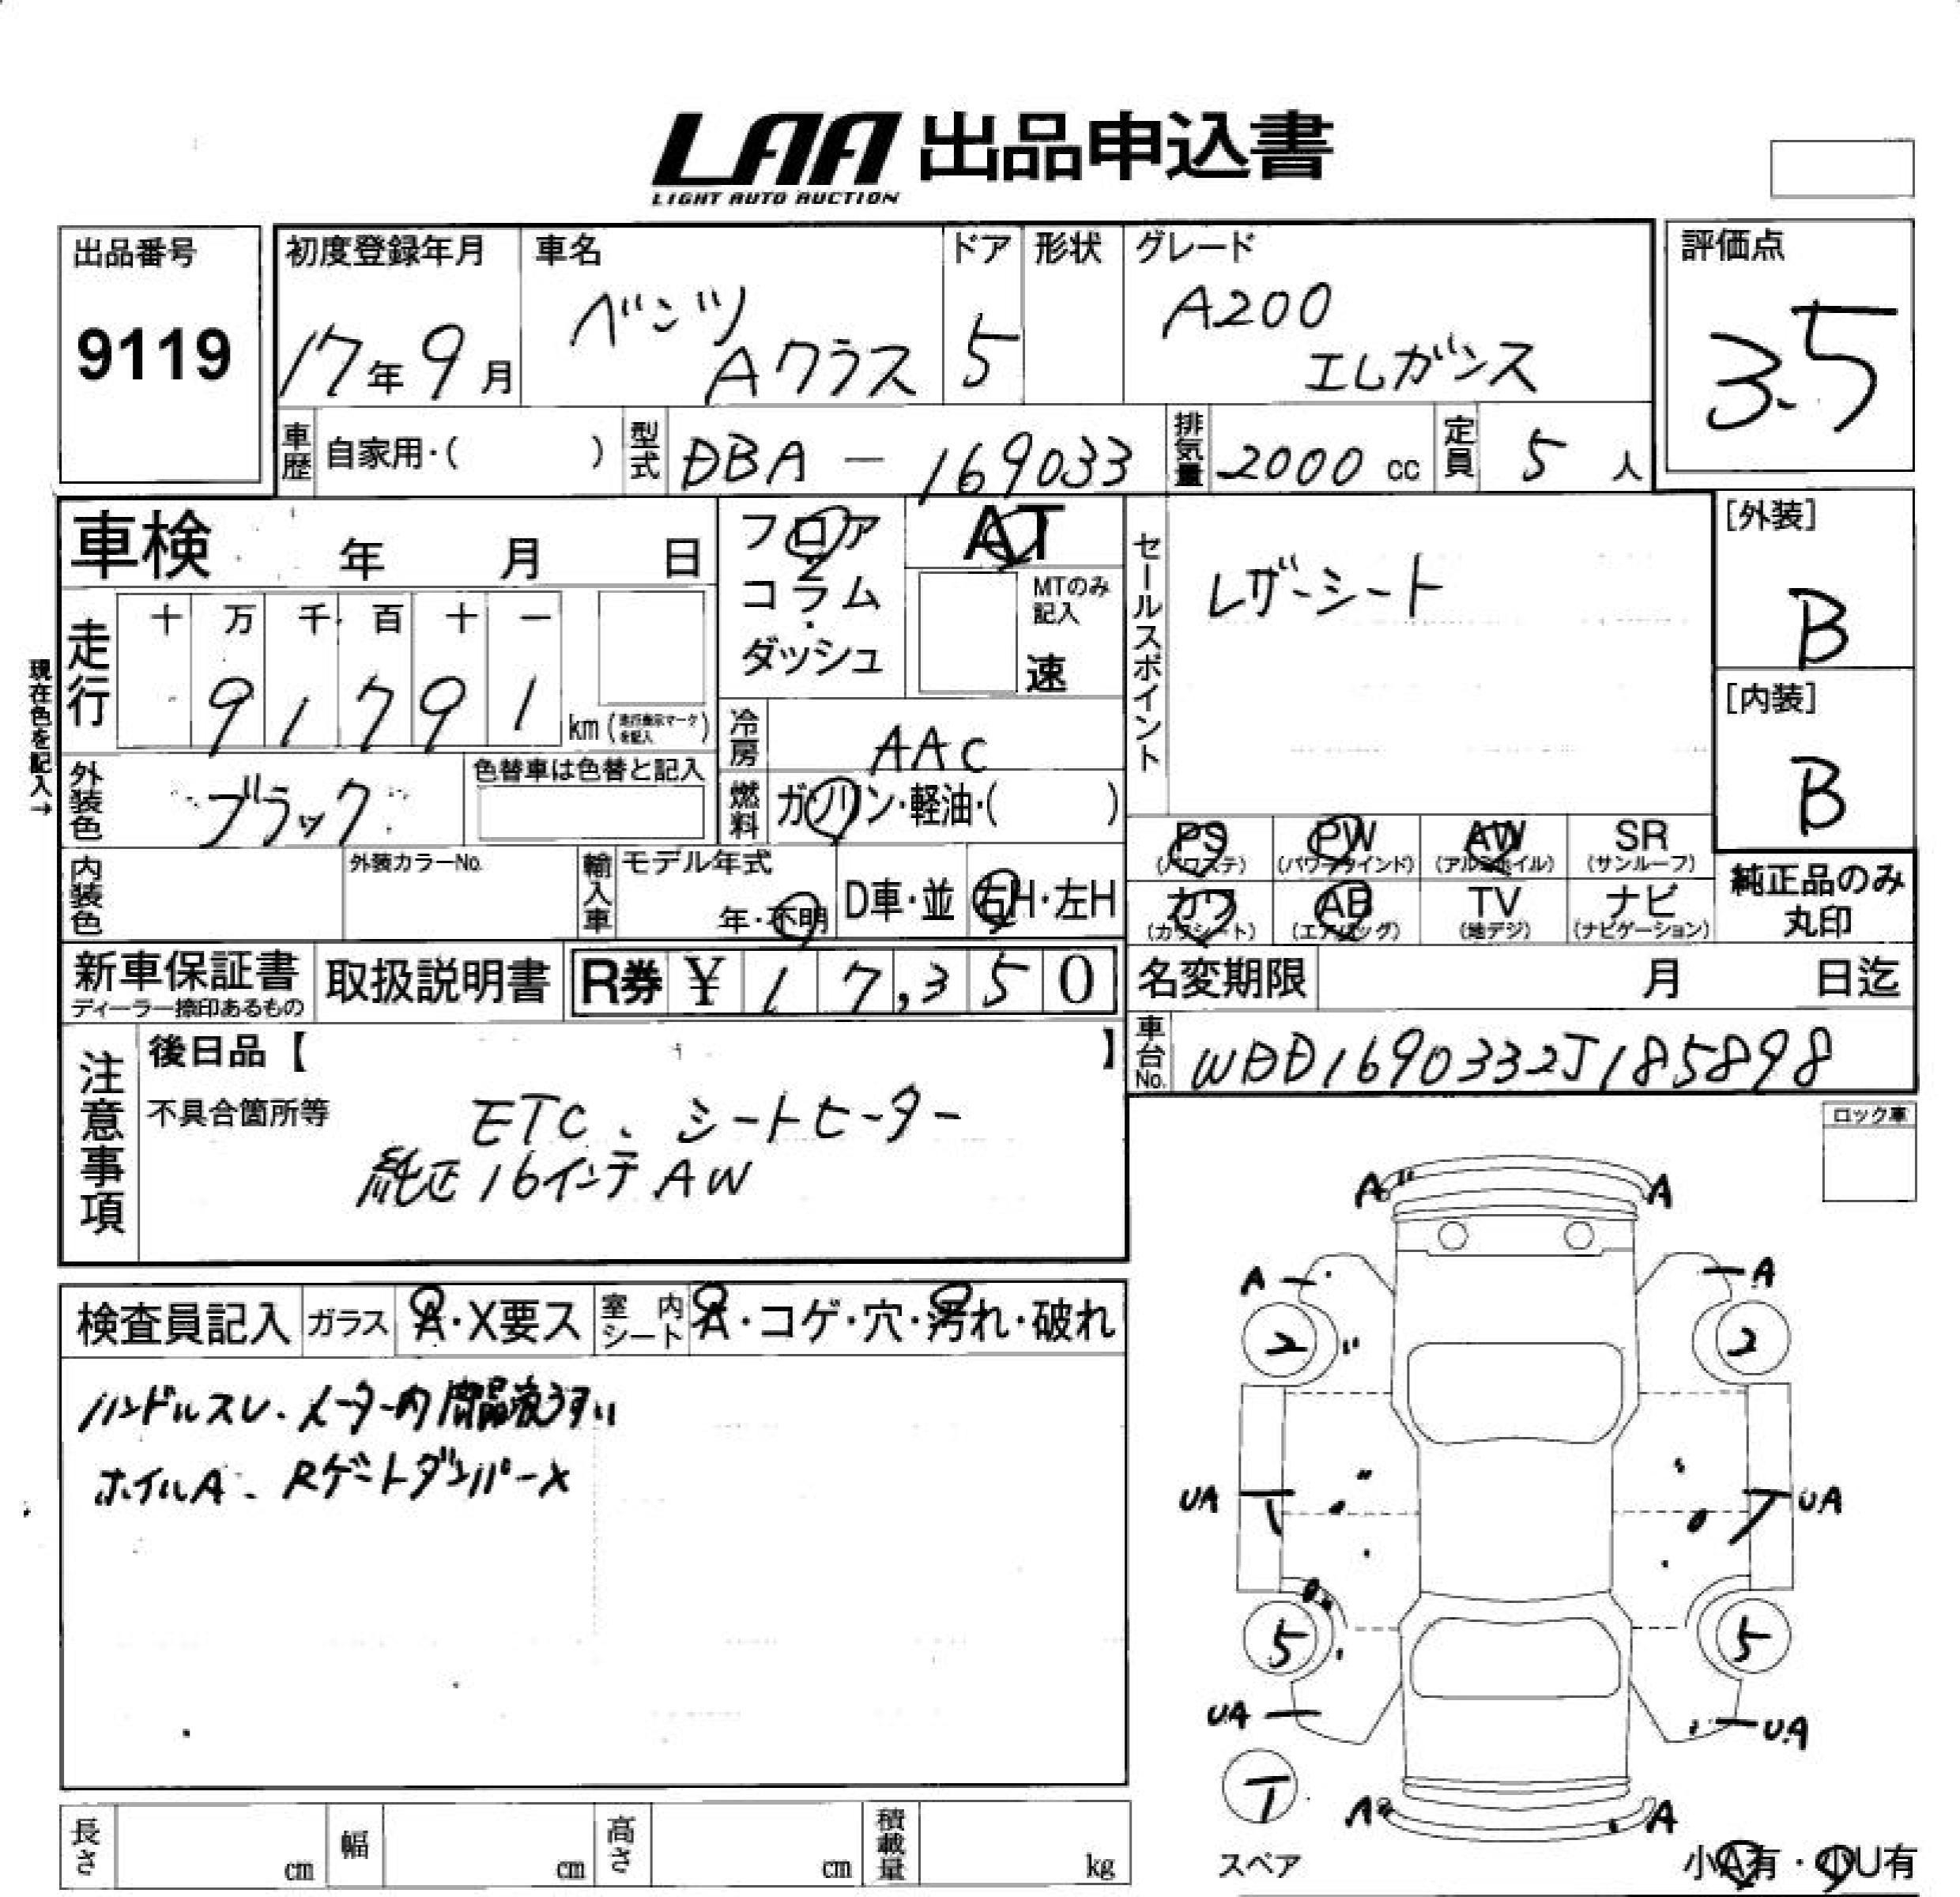 LAA 出品申込書
LIGHT AUTO AUCTION
出品番号
9119
初度登録年月
17年9月
車名
ベンツ
Aクラス
ドア
5
形状
グレード
A200
エレガンス
評価点
3.5
車歴
自家用・( )
型式
DBA-169033
排気量
2000 cc
定員
5 人
車検 年 月 日
フロア
コラム
ダッシュ
AT
MTのみ
記入
速
セールスポイント
レザーシート
[外装]
B
[内装]
B
現在色を記入→
走行
十 万 千 百 十 一
9 1 7 9 1
km (
)
冷房
AAC
外装色
ブラック
色替車は色替と記入
燃料
ガソリン・軽油・( )
PS
(パワステ)
PW
(パワーウインド)
AW
(アルミホイル)
SR
(サンルーフ)
カワ
(カワシート)
AB
(エアバッグ)
TV
(地デジ)
ナビ
(ナビゲーション)
純正品のみ
丸印
内装色
外装カラーNo.
輸入車
モデル年式
年・不明
D車・並
右H・左H
新車保証書
ディーラー捺印あるもの
取扱説明書
R券 ¥ 17,350
名変期限 月 日迄
車台No.
WDD1690332J185898
注意事項
後日品【 】
不具合箇所等
ETC、シートヒーター
純正16インチAW
ロック車
検査員記入
ガラス
A・X要ス
室内シート
A・コゲ・穴・汚れ・破れ
ハンドルスレ、メーター内液晶うすい
ホイルA、Rゲートダンパー×
A A
A A
2 2
UA UA
5 5
UA UA
T
スペア
A A
小A有・小U有
長さ cm
幅 cm
高さ cm
積載量 kg